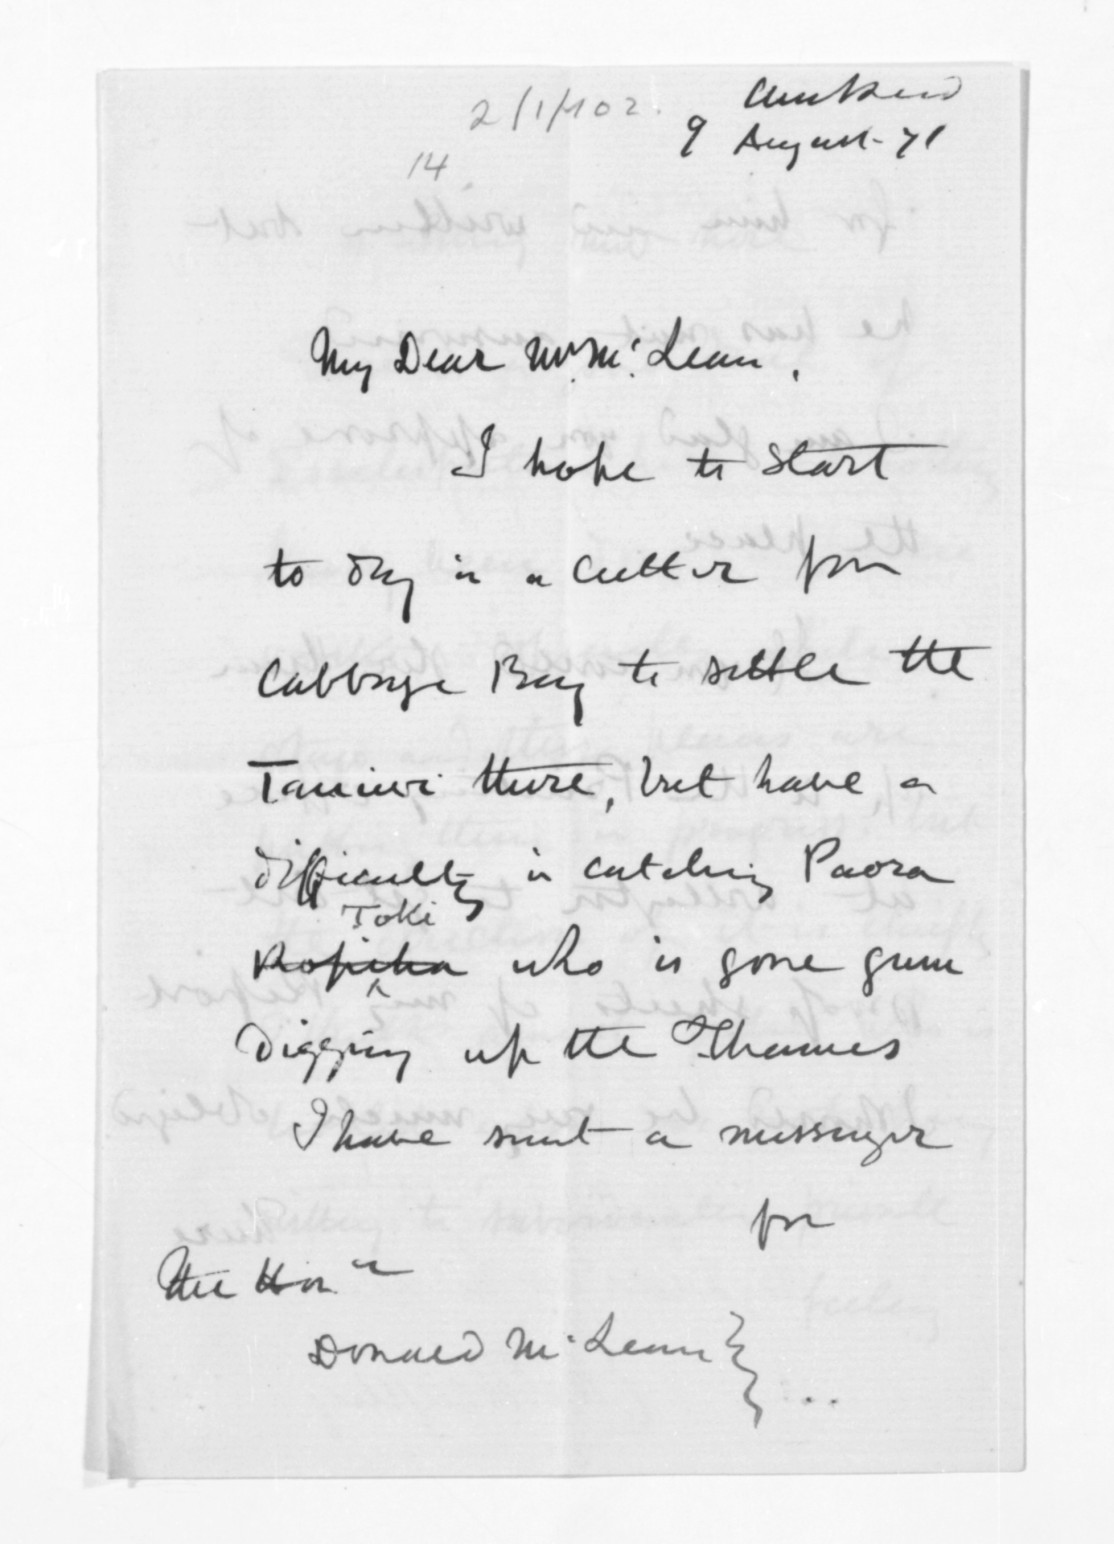 2/1/102.
Auckland
9 August-71
14
My Dear Mr. McLean,
I hope to start
to day in a Cutter for
Cabbage Bay to settle the
Taniwi there, but have a
difficulty in catching Paora
Toki
Ropiha who is gone gum
Digging up the Thames
I have sent a messenger
for
The Hon
Donald McLean